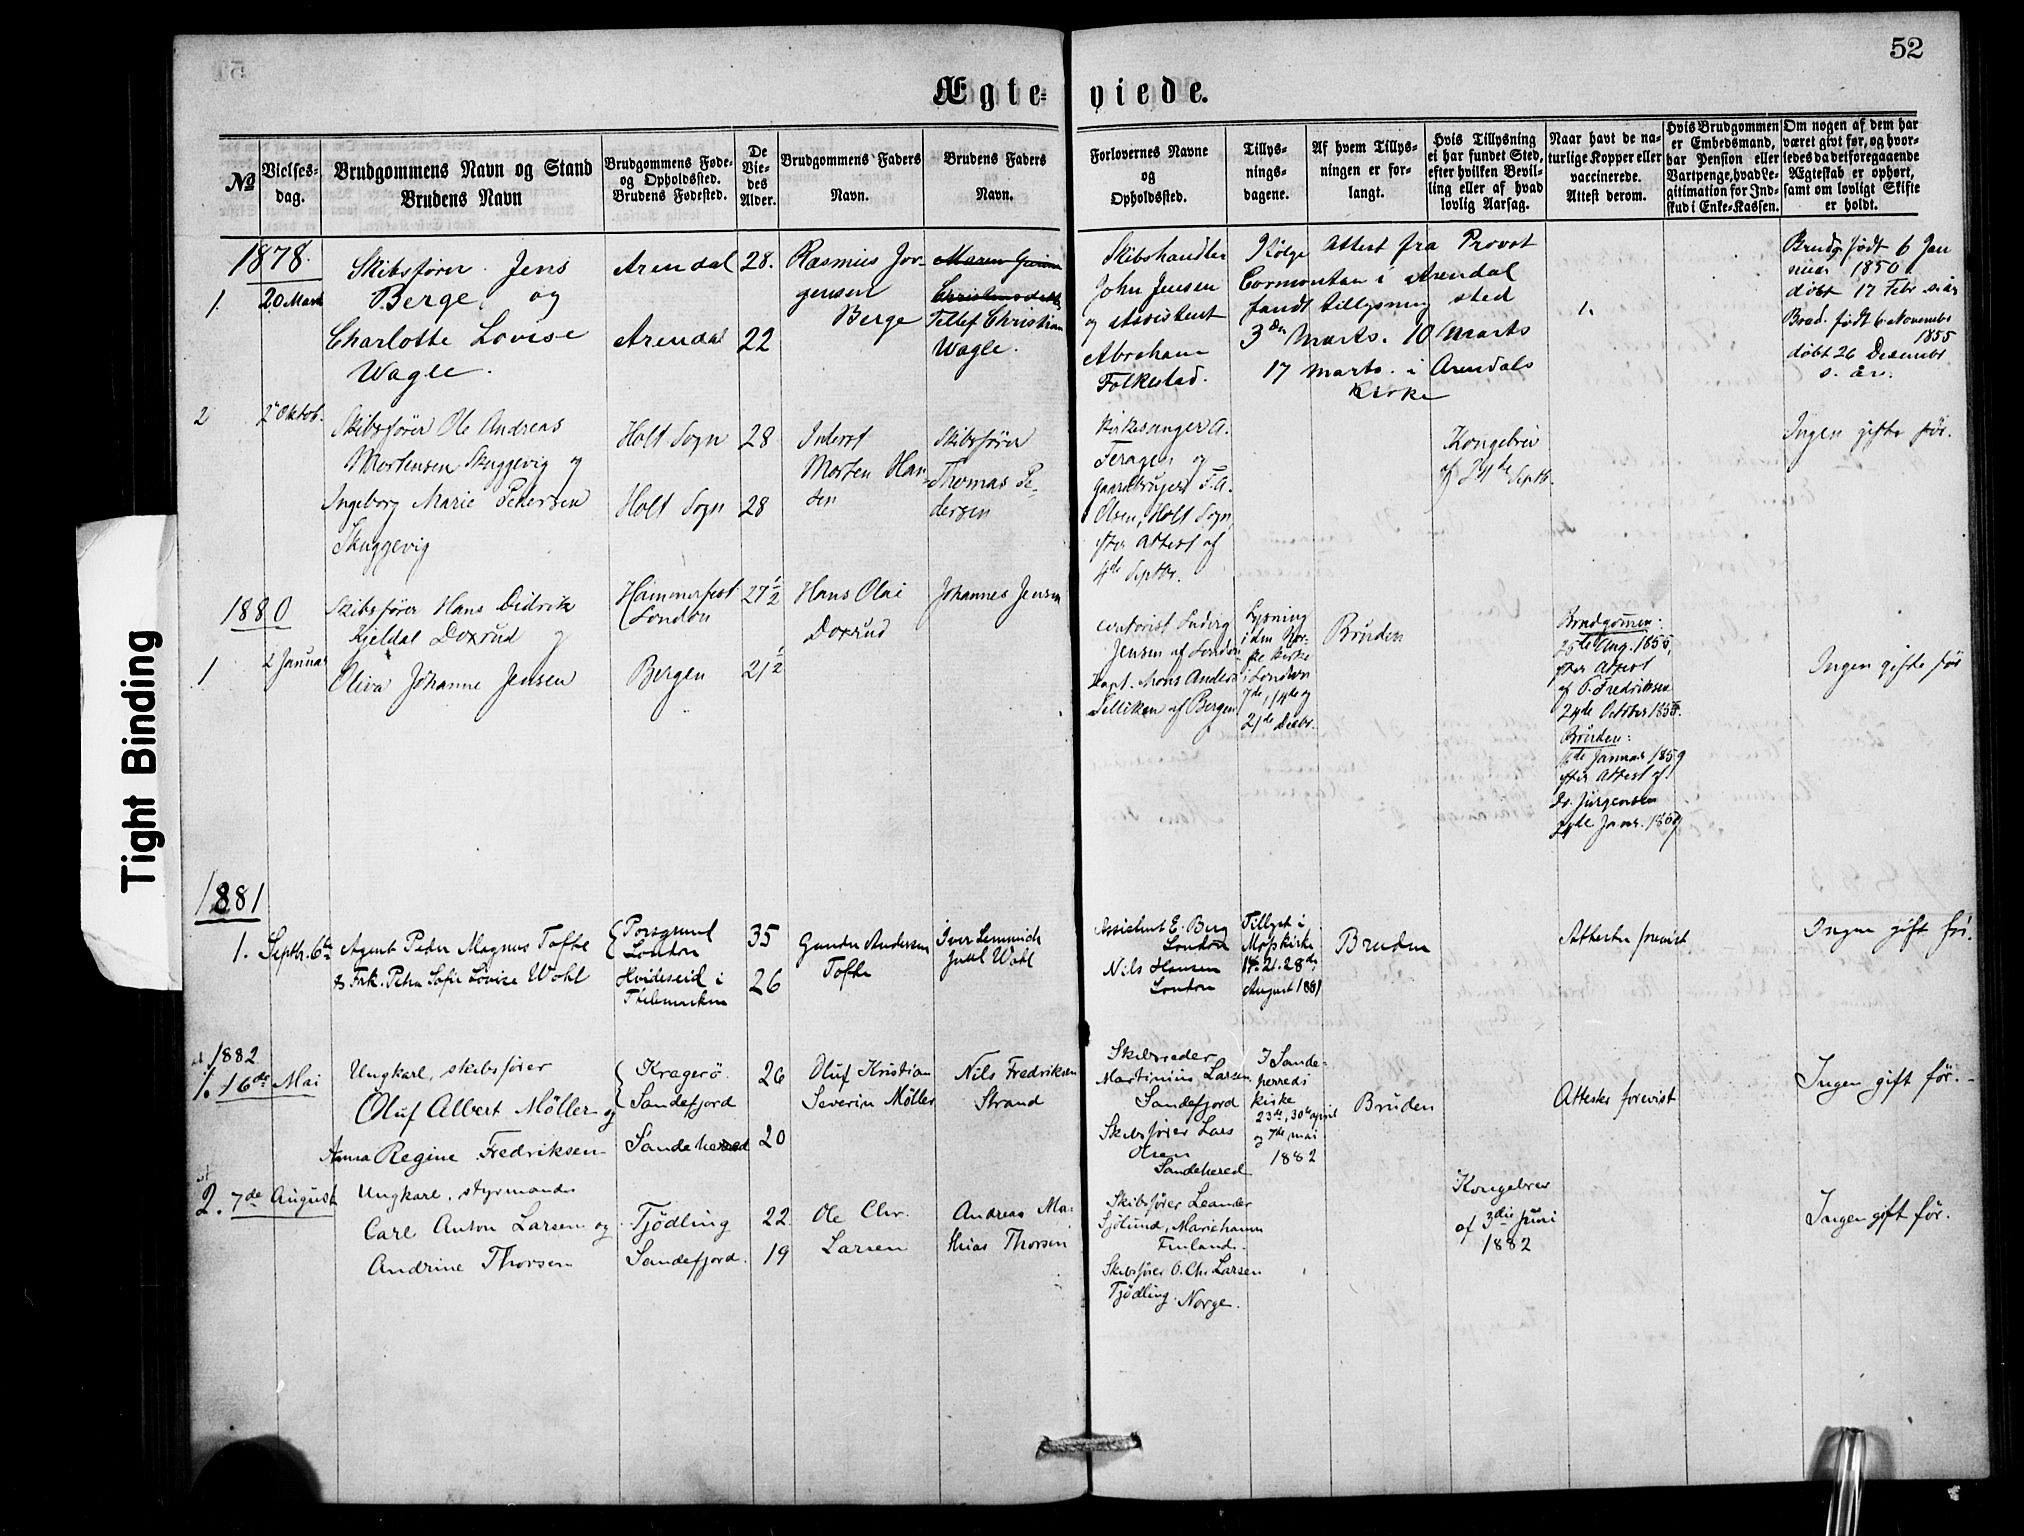 52
Ægte-viede.
№
Vielses-
dag.
Brudgommens Navn og Stand
Brudens Navn
Brudgommens Føde-
og Opholdssted.
Brudens Fødested.
De
Vie-
des
Alder.
Brudgommens Faders
Navn.
Brudens Faders
Navn.
Forlovernes Navne
og
Opholdssted.
Tillys-
nings-
dagene.
Af hvem Tillys-
ningen er for-
langt.
Hvis Tillysning
ei har fundet Sted,
efter hvilken Bevil-
ling eller af hvad
lovlig Aarsag.
Naar havt de na-
turlige Kopper eller
vaccinerede.
Attest derom.
Hvis Brudgommen
er Embedsmand,
har Pension eller
Vartpenge, hvad Le-
gitimation for Ind-
skud i Enke-Kassen.
Om nogen af dem har
været givt før, og hvor-
ledes da det foregaaende
Ægteskab er ophørt,
samt om lovligt Skifte
er holdt.
1878.
1. 20 Marts
Skibsfører Jens
Berge, og
Charlotte Lovise
Wagle.
Arendal
Arendal
28.
22
Rasmus Jor-
gensen
Berge
Tellef Christian
Wagle.
Skibshandler
John Jensen
og Assistent
Abraham
Folkestad.
Ifølge Attest fra Provst
Cormontan i Arendal
fandt tillysning sted
3die Marts. 10 Marts
17 Marts. i Arendals
Kirke
1.
Brudg. født 6 Jan
nuar 1850.
døbt 17 Febr s. år
Brud. født 6 November
1855
døbt 26 Desember
s. år.
2
2 Oktob.
Skibsfører Ole Andreas
Mortensen Skuggevig og
Ingeborg Marie Pedersen
Skuggevig
Holt Sogn
Holt Sogn
28
28
Inderst
Morten Han-
sen
Skibsfører
Thomas Pe-
dersen
Kirkesanger A.
Feragen og
Gaardbruger F. A.
Olsen, Holt Sogn,
efter Attest af
4de Septbr.
Kongebrev
af Septb.
Ingen gifte før.
1880
1
2 Januar
Skibsfører Hans Didrik
Kjeldal Doxrud og
Oliva Johanne Jensen
Hammerfest
London
Bergen
27 1/2
21 1/2
Hans Olai
Doxrud
Johannes Jensen
Contorist Ludvig
Jensen af London
Kapt. Mons Anders
Selliken af Bergen
Lysning
i den Nor-
ske Kirke
i London
7de, 14de og
21de Decbr.
Bruden
Brudgommen:
25de Aug. 1855,
efter Attest
af P. Fredriksen
24de October 1855.
Bruden:
de Januar 1859
efter Attest af
Jürgensen
de Janr. 1859
Ingen gifte før
1881
1. Septbr. 6te
Agent Peder Magnus Tofte
& Frk. Petra Sofie Lovise Wahl
Porsgrund
London
Hvideseid i
Thelemarken
35
26
Gunder Andersen
Tofte
Iver Lemmich
Juell Wahl
Assistent E. Berg
London
Nils Hansen
London
Tillyst i
Mosskirke
14. 21. 28de
August 1881
Bruden
Attester forevist
Ingen gift før.
1882
1. 16de Mai
Ungkarl, skibsfører
Oluf Albert Möller og
Anna Regine Fredriksen
Kragerö
Sandefjord
Sandehered
26
20
Oluf Kristian
Severin Möller
Nils Fredriksen
Strand
Skibsreder
Martinius Larsen
Sandefjord
Skibsfører Lars
Olsen
Sandehered
I Sande-
herreds
Kirke
23de, 30te april
og 7de mai
1882
Bruden
Attester forevist
Ingen gift før.
2. 7de August
Ungkarl, styrmand
Carl Anton Larsen og
Andrine Thorsen
Tjödling
Sandefjord.
22
19
Ole Chr.
Larsen
Andreas Ma-
thias Thorsen
Skibsfører Leander
Sjölund, Mariehamn
Finland.
Skibsfører O. Chr Larsen
Tjödling. Norge.
Kongebrev
af 3die Juni
1882
Ingen gift før.
Tight Binding